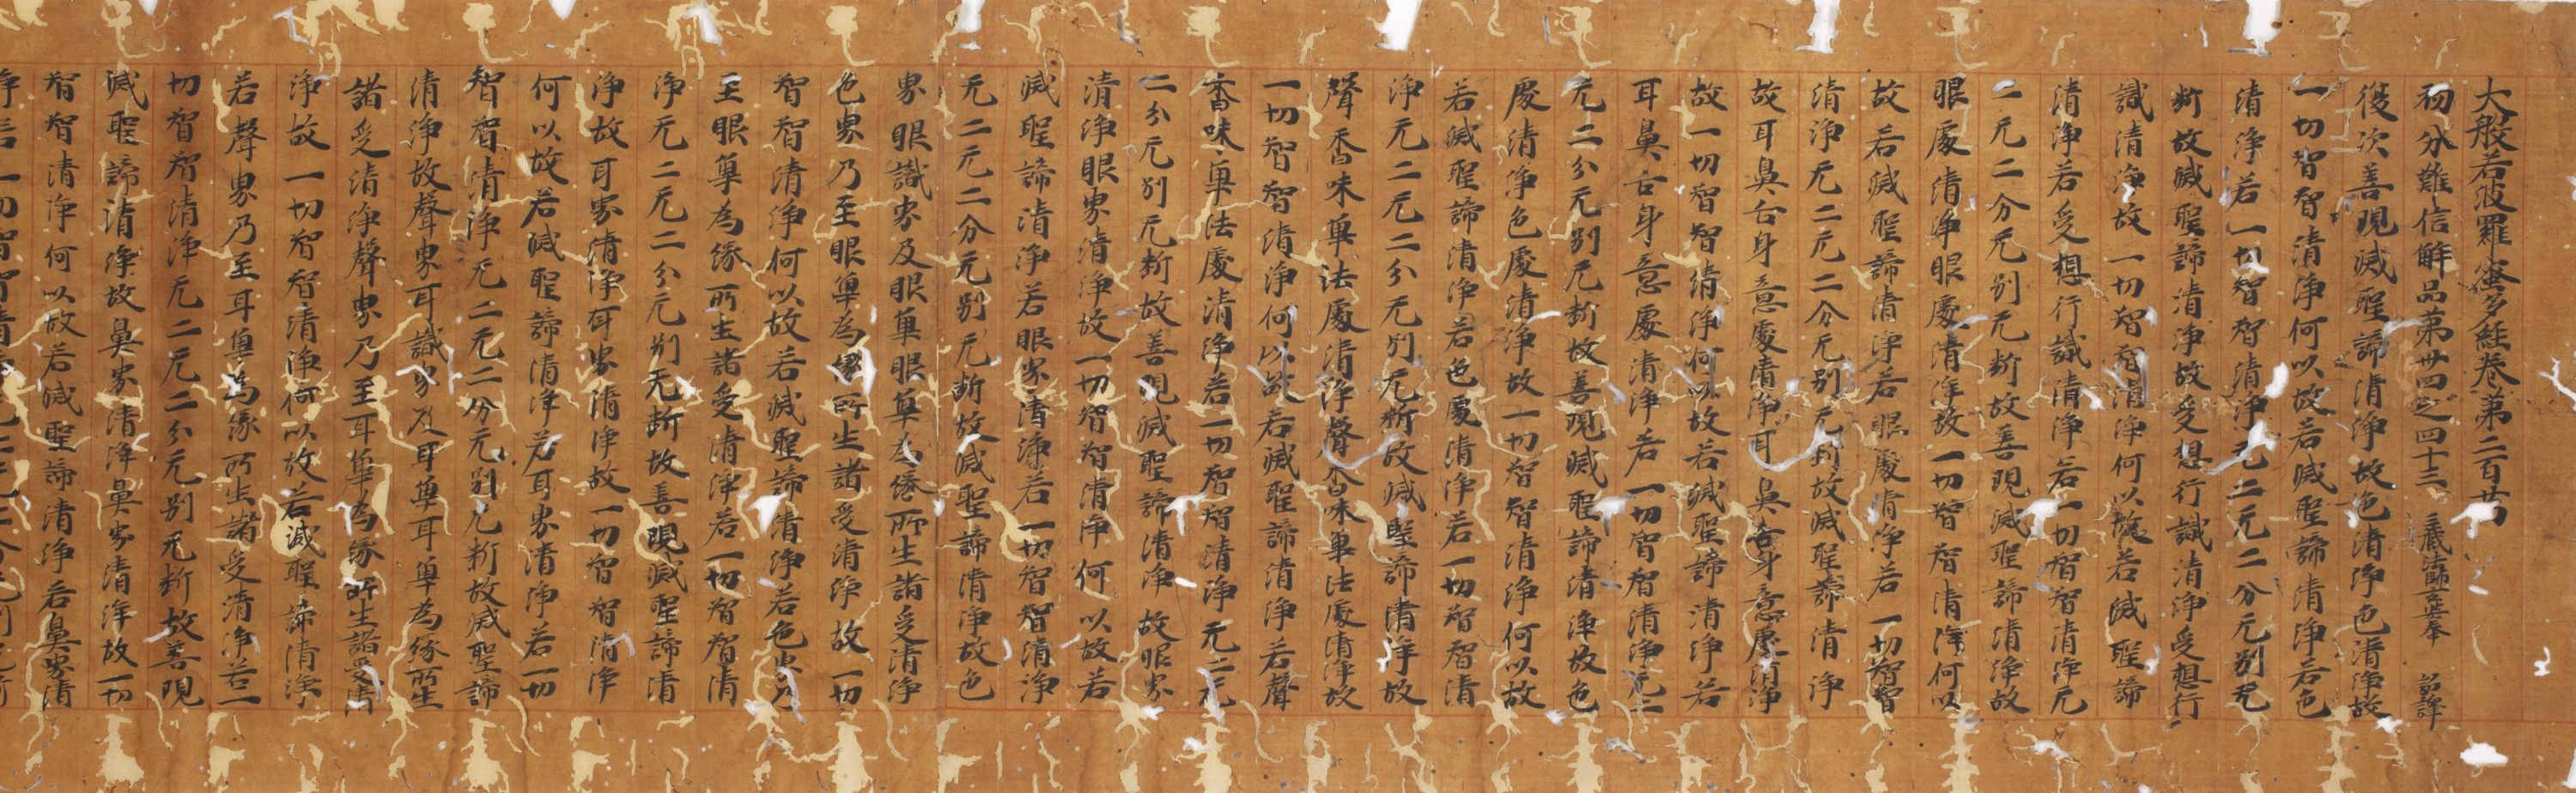 大般若波羅蜜多經卷第二百廿
初分難信解品第卅四之四十三 三藏法師玄奘奉 詔譯
復次善現滅聖諦清淨故色清淨色清淨故
一切智智清淨何以故若滅聖諦清淨若色
清淨若一切智智清淨无二无二分无別无
斷故滅聖諦清淨故受想行識清淨受想行
識清淨故一切智智清淨何以故若滅聖諦
清淨若受想行識清淨若一切智智清淨无
二无二分无別无斷故善現滅聖諦清淨故
眼處清淨眼處清淨故一切智智清淨何以
故若滅聖諦清淨若眼處清淨若一切智智
清淨无二无二分无別无斷故滅聖諦清淨
故耳鼻舌身意處清淨耳鼻舌身意處清淨
故一切智智清淨何以故若滅聖諦清淨若
耳鼻舌身意處清淨若一切智智清淨无二
无二分无別无斷故善現滅聖諦清淨故色
處清淨色處清淨故一切智智清淨何以故
若滅聖諦清淨若色處清淨若一切智智清
淨无二无二分无別无斷故滅聖諦清淨故
聲香味觸法處清淨聲香味觸法處清淨故
一切智智清淨何以故若滅聖諦清淨若聲
香味觸法處清淨若一切智智清淨无二无
二分无別无斷故善現滅聖諦清淨故眼界
清淨眼界清淨故一切智智清淨何以故若
滅聖諦清淨若眼界清淨若一切智智清淨
无二无二分无別无斷故滅聖諦清淨故色
界眼識界及眼觸眼觸為緣所生諸受清淨
色界乃至眼觸為緣所生諸受清淨故一切
智智清淨何以故若滅聖諦清淨若色界乃
至眼觸為緣所生諸受清淨若一切智智清
淨无二无二分无別无斷故善現滅聖諦清
淨故耳界清淨耳界清淨故一切智智清淨
何以故若滅聖諦清淨若耳界清淨若一切
智智清淨无二无二分无別无斷故滅聖諦
清淨故聲界耳識界及耳觸耳觸為緣所生
諸受清淨聲界乃至耳觸為緣所生諸受清
淨故一切智智清淨何以故若滅聖諦清淨
若聲界乃至耳觸為緣所生諸受清淨若一
切智智清淨无二无二分无別无斷故善現
滅聖諦清淨故鼻界清淨鼻界清淨故一切
智智清淨何以故若滅聖諦清淨若鼻界清
淨若一切智智清